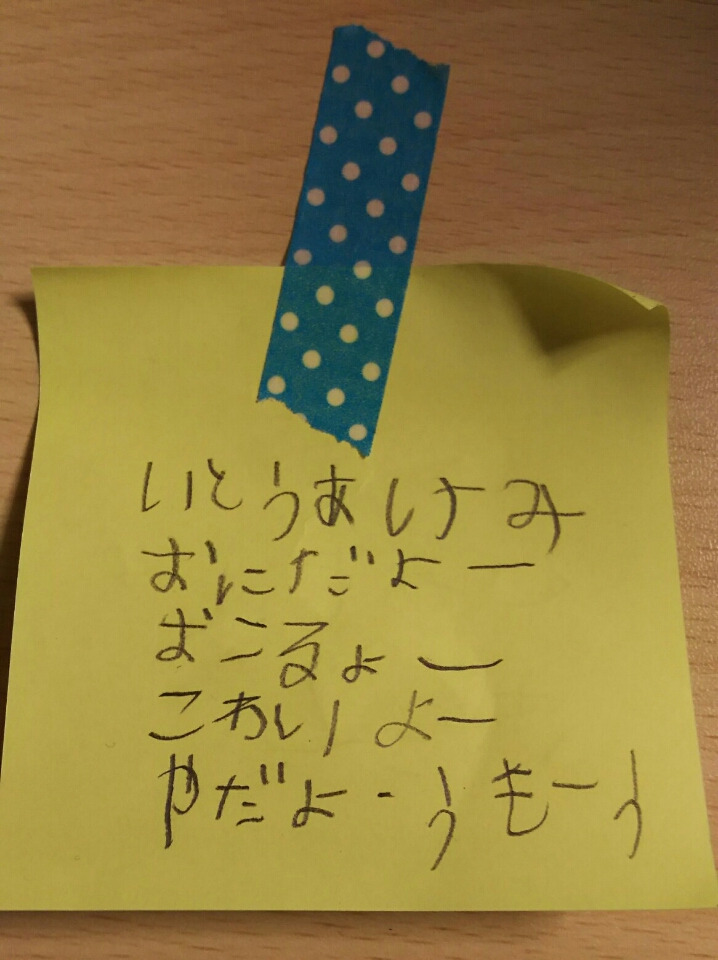 いとうあけみ
おにだよー
おこるよー
こわいよー
やだよーうもーう